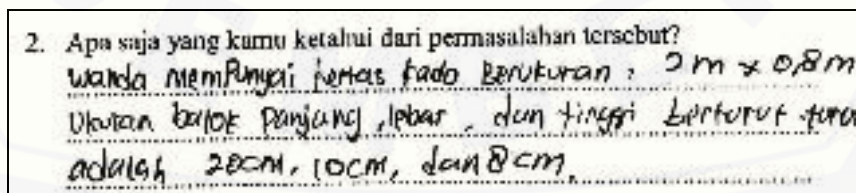 2. Apa saja yang kamu ketahui dari permasalahan tersebut?
Wanda mempunyai kertas kado berukuran : 2 m x 0,8 m
Ukuran balok panjang, lebar, dan tinggi berturut tura
adalah 20cm, 10cm, dan 8 cm.